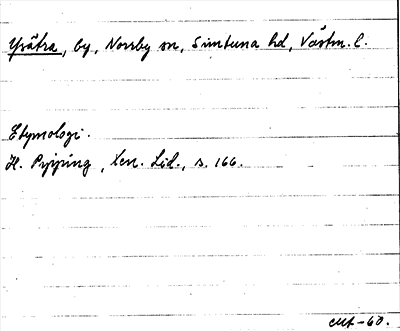 Yvätra, by, Norrby sn, Simtuna hd, Västm. l.
Etymologi.
H. Pipping, Xen. Lid., s. 166.
cut -60.